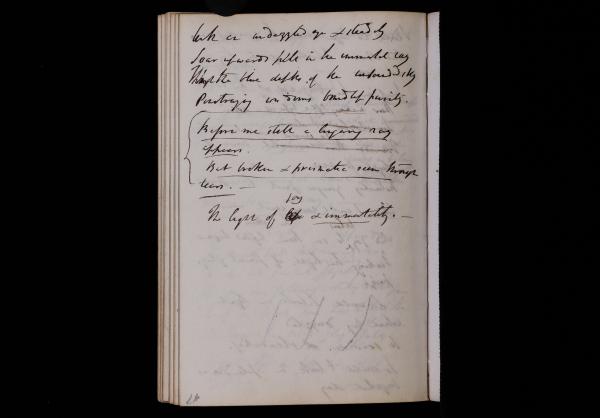 with an undazzled eye & steadily
Soar upwards full in the immortal ray
Through the blue depths of the unbounded sky
Pourtraying wisdoms boundless purity.
Before me still a lingering ray
appears.
But broken & prismatic seen through
tears. —
joy
The light of & immortality. —